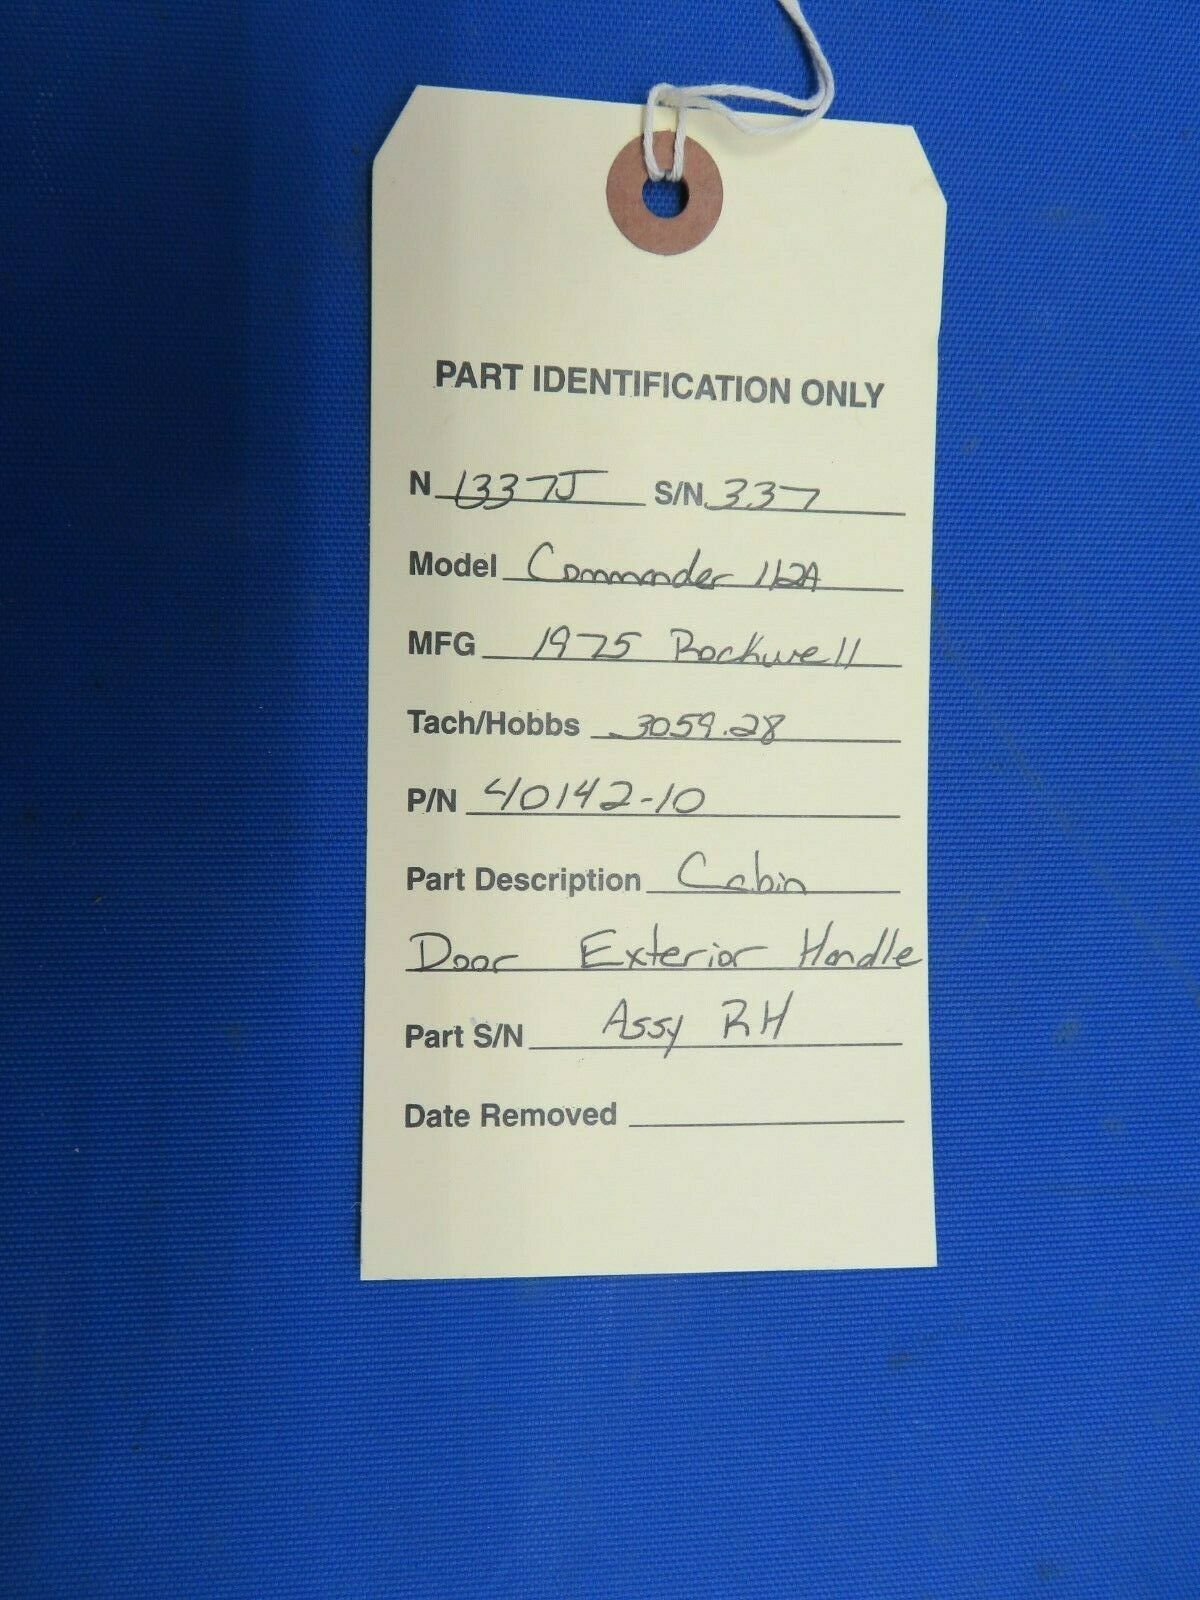 PART IDENTIFICATION ONLY
N 1337J S/N 337
Model Commander 112A
MFG 1975 Rockwell
Tach/Hobbs 3059.28
P/N 40142-10
Part Description Cabin
Door Exterior Handle
Part S/N Assy RH
Date Removed